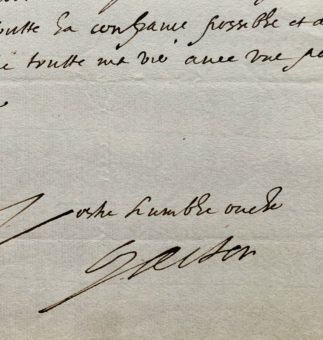 toutte la confiance possible et a
toutte ma vie avec une
Vostre humble oncle
Gaston